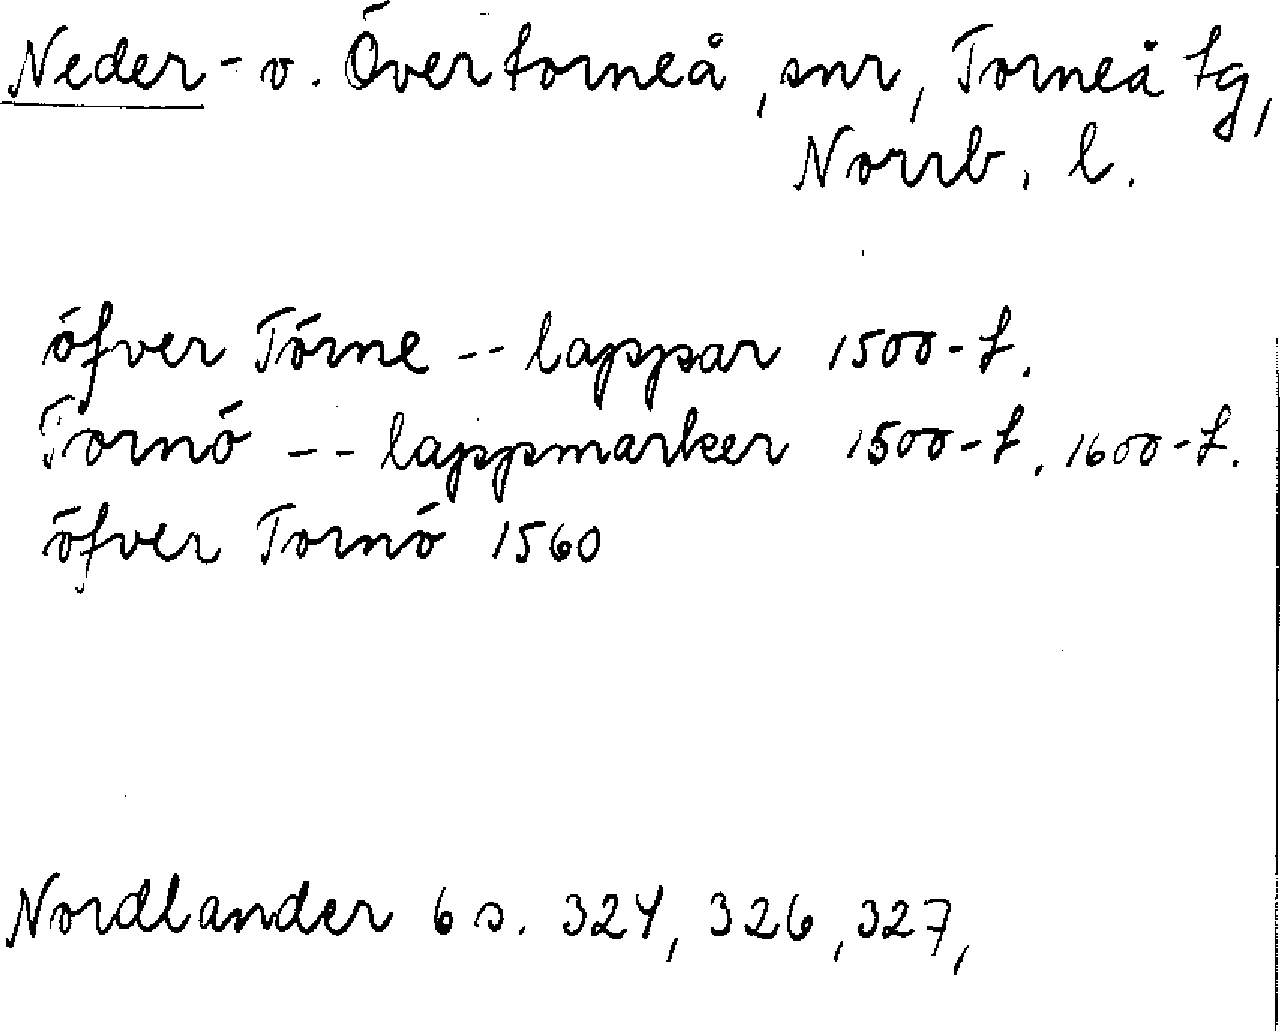 Neder- v. Övertorneå, snr, Torneå tg,
Norrb. l.
öfver Törne -- lappar 1500-t.
Tornö -- lappmarker 1500-t. 1600-t.
öfver Tornö 1560
Nordlander 6 s. 324, 326, 327,